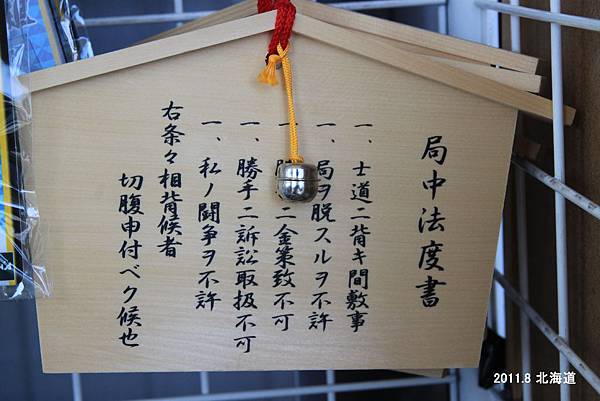 局中法度書
一、士道ニ背キ間敷事
一、局ヲ脱スルヲ不許
一、ニ金策致不可
一、勝手ニ訴訟取扱不可
一、私ノ闘争ヲ不許
右条々相背候者
切腹申付ベク候也
2011.8 北海道